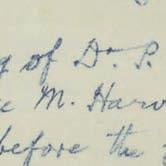 of Dr. P.
M. Harv
before the